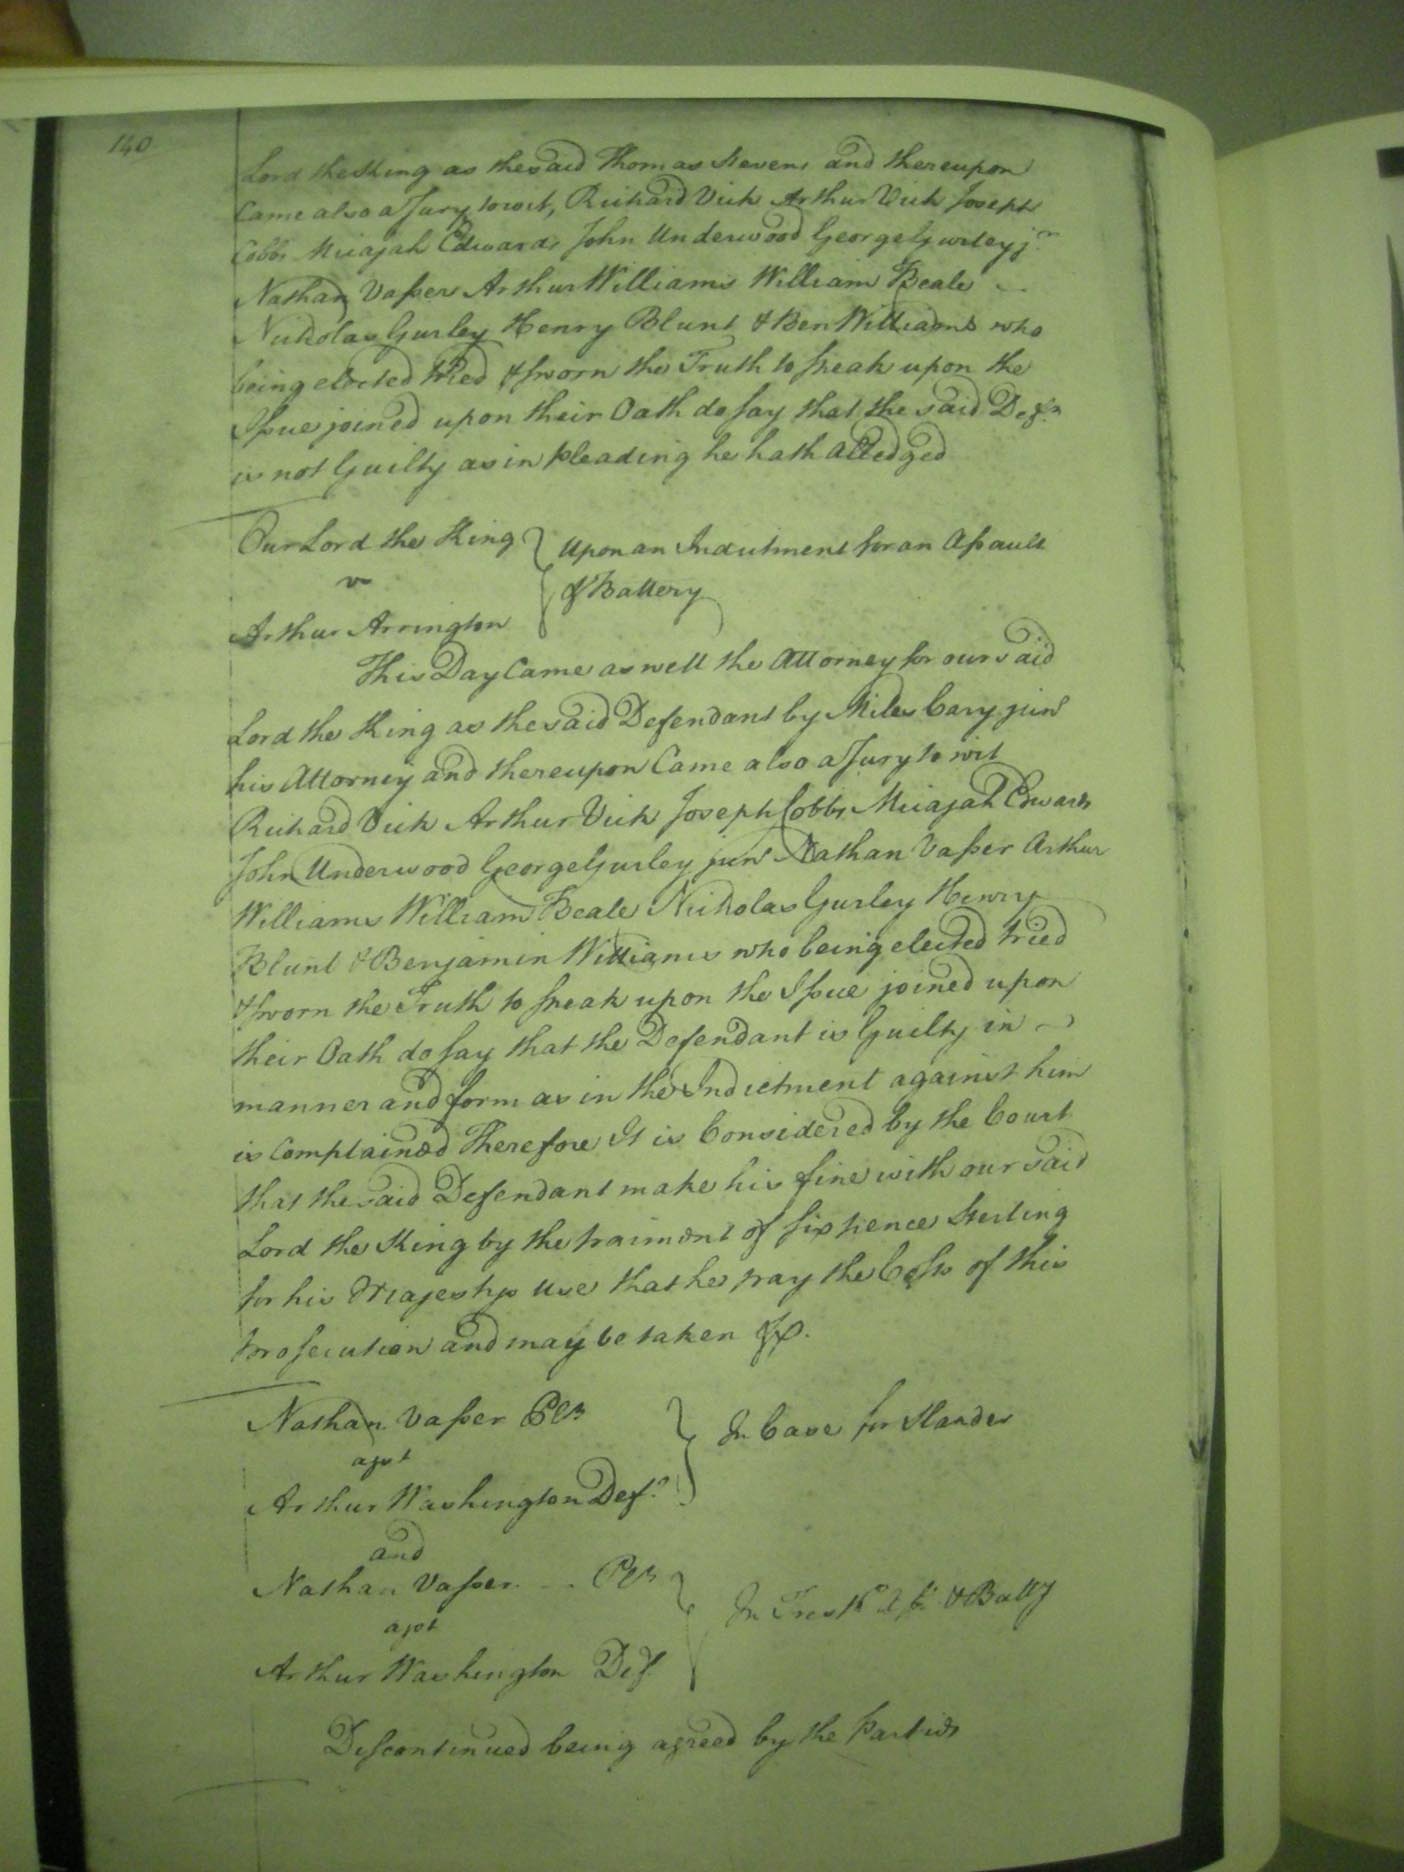 140
Lord the King as the said Thomas Stevens and thereupon
Came also a Jury towit, Richard Vick Arthur Vick Joseph
Cobbs Micajah Edwards John Underwood George Gurley jr
Nathan Vasser Arthur Williams William Beale
Nicholas Gurley Henry Blunt & Ben Williams who
being elected tried & sworn the Truth to speak upon the
Issue joined upon their Oath do say that the said Defn
is not Guilty as in pleading he hath alledged
Our Lord the King
v
Arthur Arrington
Upon an Indictment for an Assault
& Battery
This Day Came as well the Attorney for our said
Lord the King as the said Defendant by Miles Cary junr
his Attorney and thereupon Came also a Jury to wit
Richard Vick Arthur Vick Joseph Cobbs Micajah Edwards
John Underwood George Gurley junr Nathan Vasser Arthur
Williams William Beale Nicholas Gurley Henry
Blunt & Benjamin Williams who being elected tried
& sworn the Truth to speak upon the Issue joined upon
their Oath do say that the Defendant is Guilty in
manner and form as in the Indictment against him
is Complained Therefore It is Considered by the Court
that the said Defendant make his fine with our said
Lord the King by the paiment of six pence Sterling
for his Majestys use that he pay the Costs of this
prosecution and may be taken &c.
Nathan Vasser Plt
agst
Arthur Washington Deft
In Case for Slander
and
Nathan Vasser Plt
agst
Arthur Washington Def
In Tresps & Batty
Discontinued being agreed by the Parties